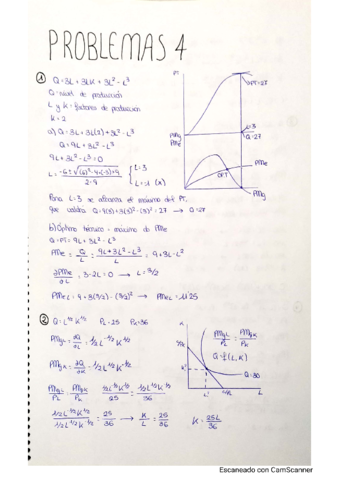 PROBLEMAS 4
① Q = 3L + 3LK + 3L² - L³
Q = nivel de producción
L y K = factores de producción
K = 2
a) Q = 3L + 3L(2) + 3L² - L³
Q = 9L + 3L² - L³
9L + 3L² - L³ = 0
L = 3
L = -1 (X)
Para L = 3 se alcanza el máximo del PT
que valdrá Q = 9(3) + 3(3)² - (3)³ = 27 → Q = 27
b) Óptimo técnico = máximo de PMe
Q = PT = 9L + 3L² - L³
PMe = Q/L = 9L + 3L² - L³ / L = 9 + 3L - L²
∂PMe/∂L = 3 - 2L = 0 → L = 3/2
PMeL = 9 + 3(3/2) - (3/2)² → PMeL = 11'25
PT
PT = 27
L = 3
Q = 27
PMg
PMe
PMe
OPT
PMg
L
② Q = L^1/2 K^1/2 PL = 25 PK = 36
PMgL = ∂Q/∂L = 1/2 L^-1/2 K^1/2
PMgK = ∂Q/∂K = 1/2 L^1/2 K^-1/2
PMgL/PL = PMgK/PK
1/2 L^-1/2 K^1/2 / 25 = 1/2 L^1/2 K^-1/2 / 36
1/2 L^-1/2 K^1/2 / 1/2 L^1/2 K^-1/2 = 25/36 → K/L = 25/36
K = 25L/36
K
PMgL/PL = PMgK/PK
Q = f(L, K)
K*
L*
L
Escaneado con CamScanner